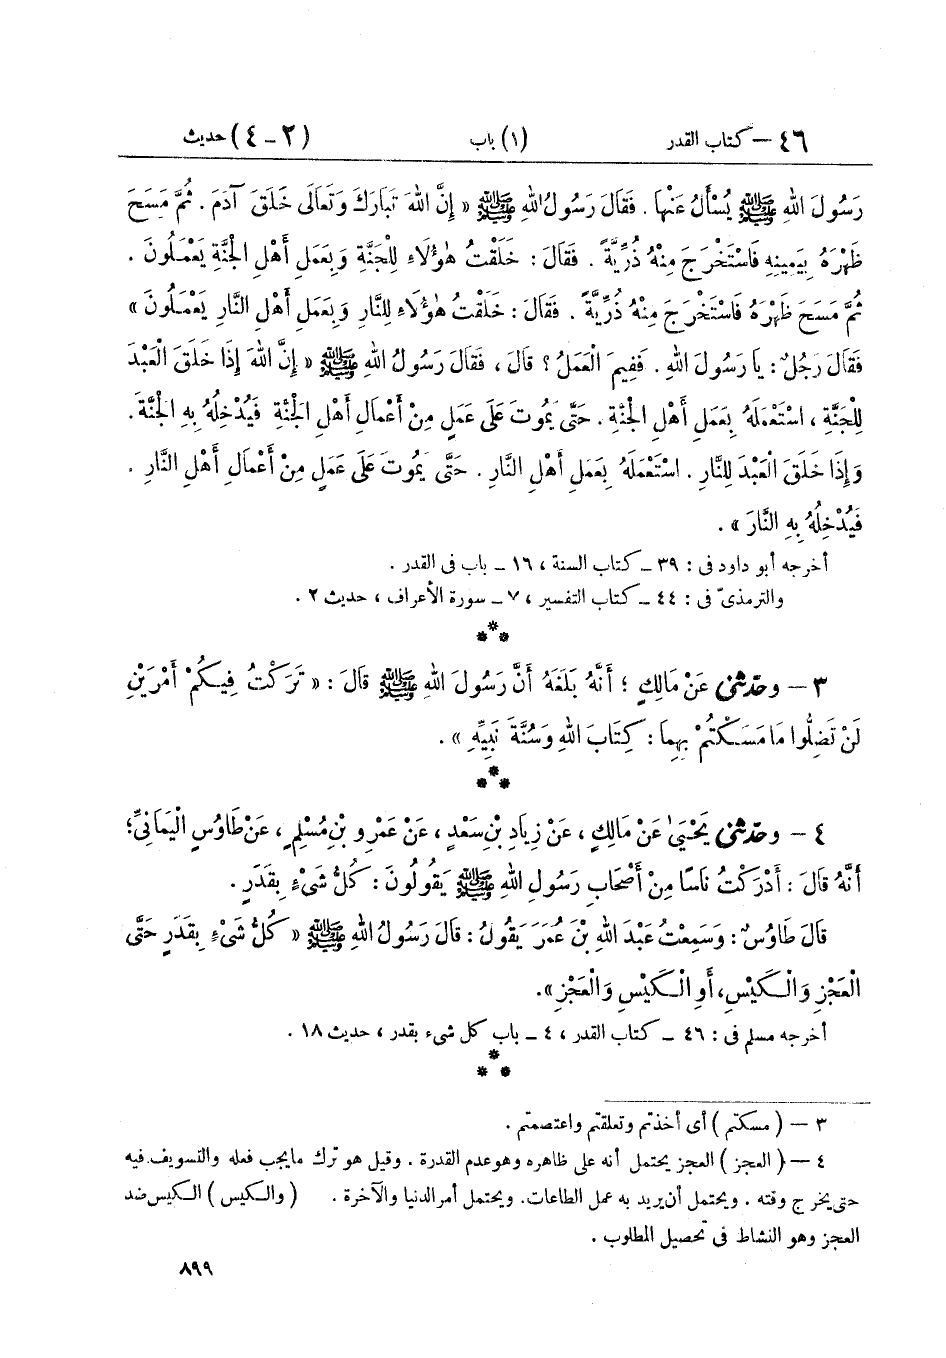 ٤٦ – كتاب القدر (١) باب (٢ – ٤) حديث
رَسُولَ اللهِ ﷺ يُسْأَلُ عَنْهَا . فَقَالَ رَسُولُ اللهِ ﷺ « إِنَّ اللهَ تَبَارَكَ وَتَعَالَى خَلَقَ آدَمَ . ثُمَّ مَسَحَ
ظَهْرَهُ بِيَمِينِهِ فَاسْتَخْرَجَ مِنْهُ ذُرِّيَّةً . فَقَالَ : خَلَقْتُ هٰؤُلَاءِ لِلْجَنَّةِ وَبِعَمَلِ أَهْلِ الْجَنَّةِ يَعْمَلُونَ .
ثُمَّ مَسَحَ ظَهْرَهُ فَاسْتَخْرَجَ مِنْهُ ذُرِّيَّةً . فَقَالَ : خَلَقْتُ هٰؤُلَاءِ لِلنَّارِ وَبِعَمَلِ أَهْلِ النَّارِ يَعْمَلُونَ »
فَقَالَ رَجُلٌ : يَا رَسُولَ اللهِ . فَفِيمَ الْعَمَلُ ؟ قَالَ ، فَقَالَ رَسُولُ اللهِ ﷺ « إِنَّ اللهَ إِذَا خَلَقَ الْعَبْدَ
لِلْجَنَّةِ ، اسْتَعْمَلَهُ بِعَمَلِ أَهْلِ الْجَنَّةِ . حَتَّى يَمُوتَ عَلَى عَمَلٍ مِنْ أَعْمَالِ أَهْلِ الْجَنَّةِ فَيُدْخِلُهُ بِهِ الْجَنَّةَ .
وَإِذَا خَلَقَ الْعَبْدَ لِلنَّارِ . اسْتَعْمَلَهُ بِعَمَلِ أَهْلِ النَّارِ . حَتَّى يَمُوتَ عَلَى عَمَلٍ مِنْ أَعْمَالِ أَهْلِ النَّارِ .
فَيُدْخِلُهُ بِهِ النَّارَ » .
أخرجه أبو داود فى : ٣٩ – كتاب السنة ، ١٦ – باب فى القدر .
والترمذىّ فى : ٤٤ – كتاب التفسير ، ٧ – سورة الأعراف ، حديث ٢ .
***
٣ – وحدّثنى عَنْ مَالِكٍ ؛ أَنَّهُ بَلَغَهُ أَنَّ رَسُولَ اللهِ ﷺ قَالَ : « تَرَكْتُ فِيكُمْ أَمْرَيْنِ
لَنْ تَضِلُّوا مَا مَسَكْتُمْ بِهِمَا : كِتَابَ اللهِ وَسُنَّةَ نَبِيِّهِ » .
***
٤ – وحدّثنى يَحْيَىٰ عَنْ مَالِكٍ ، عَنْ زِيَادِ بْنِ سَعْدٍ ، عَنْ عَمْرِو بْنِ مُسْلِمٍ ، عَنْ طَاوُسٍ الْيَمَانِىِّ؛
أَنَّهُ قَالَ : أَدْرَكْتُ نَاسًا مِنْ أَصْحَابِ رَسُولِ اللهِ ﷺ يَقُولُونَ : كُلُّ شَىْءٍ بِقَدَرٍ .
قَالَ طَاوُسٌ : وَسَمِعْتُ عَبْدَ اللهِ بْنَ عُمَرَ يَقُولُ : قَالَ رَسُولُ اللهِ ﷺ « كُلُّ شَىْءٍ بِقَدَرٍ حَتَّى
الْعَجْزِ وَالْكَيْسِ، أَوِ الْكَيْسِ وَالْعَجْزِ ».
أخرجه مسلم فى : ٤٦ – كتاب القدر ، ٤ – باب كل شىء بقدر ، حديث ١٨ .
***
٣ – ( مسكتم ) أى أخذتم وتعلقتم واعتصمتم .
٤ – ( العجز ) العجز يحتمل أنه على ظاهره وهو عدم القدرة . وقيل هو ترك ما يجب فعله والتسويف فيه
حتى يخرج وقته . ويحتمل أن يريد به عمل الطاعات. ويحتمل أمر الدنيا والآخرة . ( والكيس ) الكيس ضد
العجز وهو النشاط فى تحصيل المطلوب .
٨٩٩